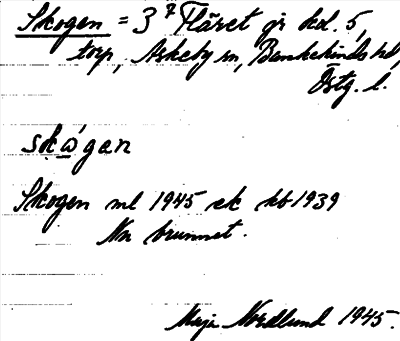 Skogen = 3 Fläret jr kd. 5,
torp, Askeby sn, Bankekinds hd,
Östg. l.
skọ̅́gan
Skogen ml 1945 ek kb 1939
Nn brunnet.
Maja Nordlund 1945.